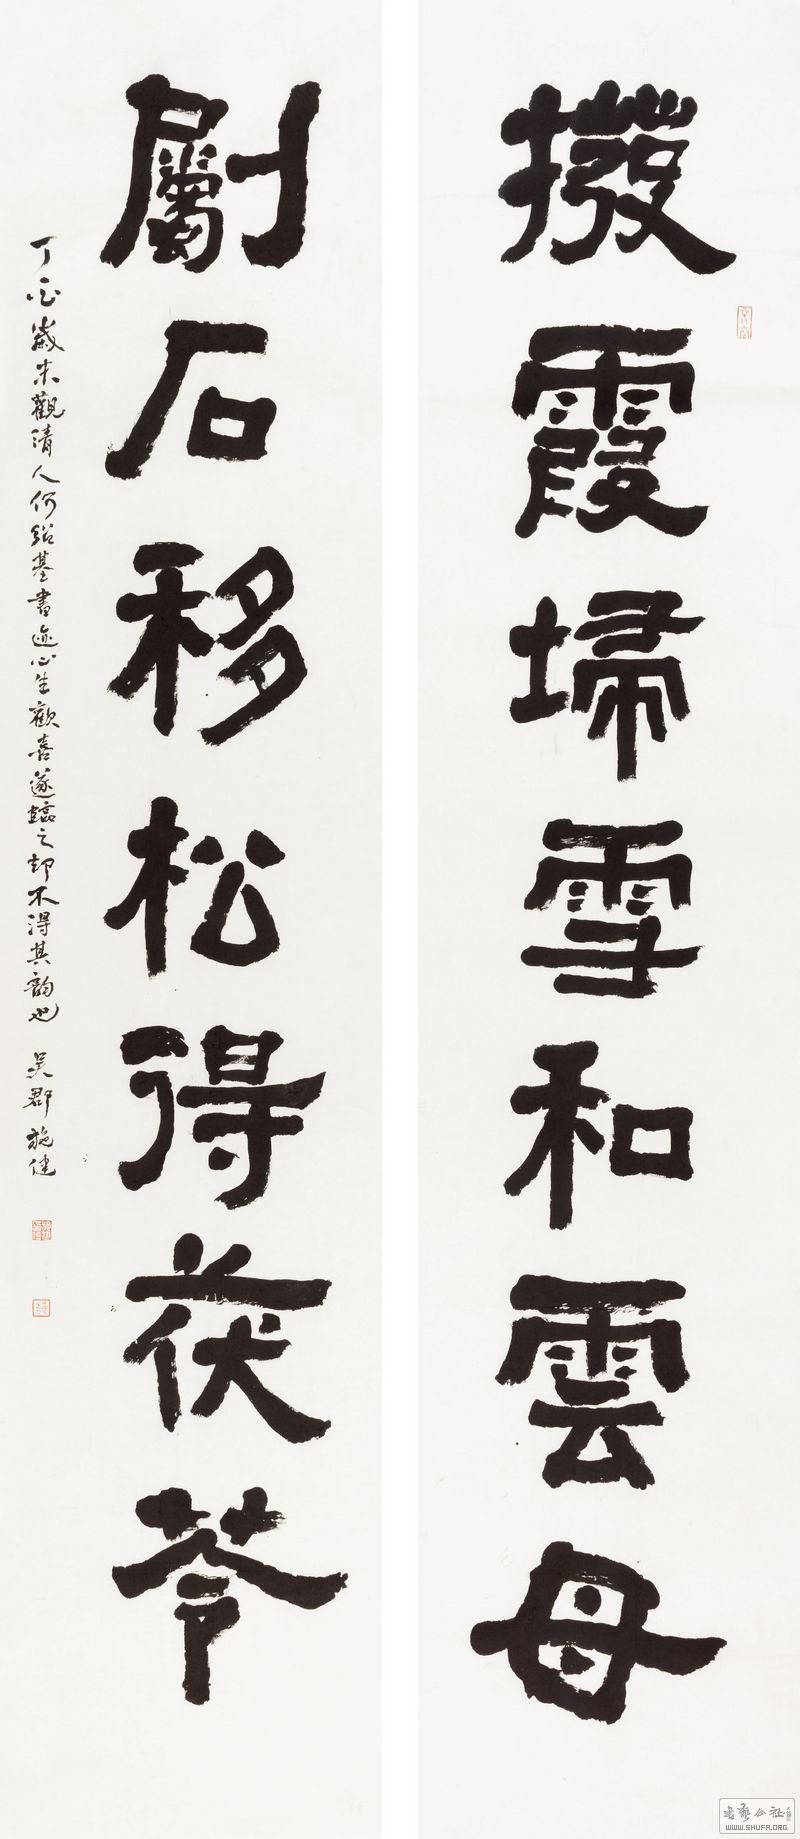 撥霞埽雪和雲母
劚石移松得茯苓
丁酉歲末觀清人何紹基書迹心生歡喜遂臨之却不得其韵也 吴郡施健
書藝公社
WWW.SHUFA.ORG